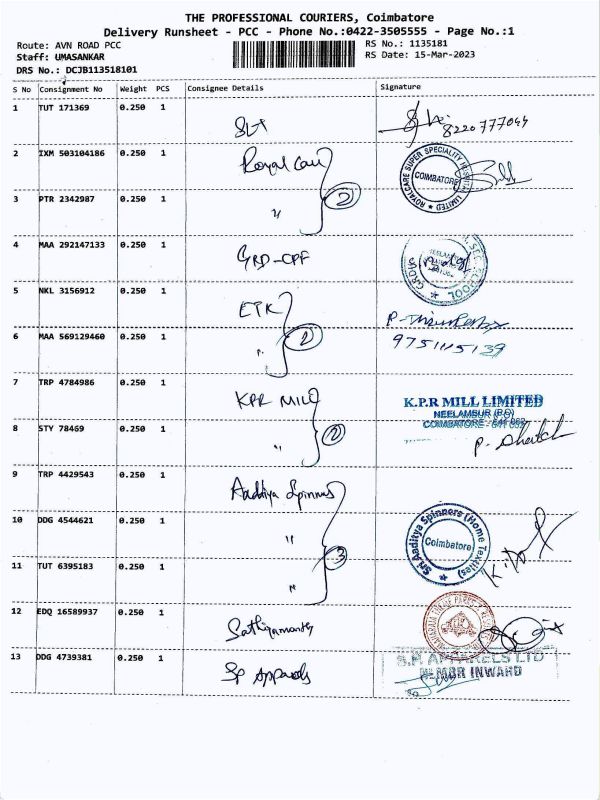 THE PROFESSIONAL COURIERS, Coimbatore
Delivery Runsheet - PCC - Phone No.:0422-3505555 - Page No.:1
Route: AVN ROAD PCC
RS No.: 1135181
Staff: UMASANKAR
RS Date: 15-Mar-2023
DRS No.: DCJB113518101
S No Consignment No Weight PCS Consignee Details Signature
1 TUT 171369 0.250 1
8220777049
2 IXM 503104186 0.250 1 Royal Care
ROYALCARE SUPER SPECIALITY HOSPITAL LIMITED
COIMBATORE
2
3 PTR 2342987 0.250 1 "
4 MAA 292147133 0.250 1 GRD-CPF
5 NKL 3156912 0.250 1 ETK
6 MAA 569129460 0.250 1 "
9751115139
7 TRP 4784986 0.250 1 KPR MILL
K.P.R MILL LIMITED
NEELAMBUR (P.O)
COIMBATORE - 641 062
8 STY 78469 0.250 1 "
2
9 TRP 4429543 0.250 1 Aaditya Spinners
10 DDG 4544621 0.250 1 "
Sri Aaditya Spinners (Home Textiles)
Coimbatore
3
11 TUT 6395183 0.250 1 "
12 EDQ 16589937 0.250 1
13 DDG 4739381 0.250 1 SP Apparels
S.P. APPARELS LTD
INWARD